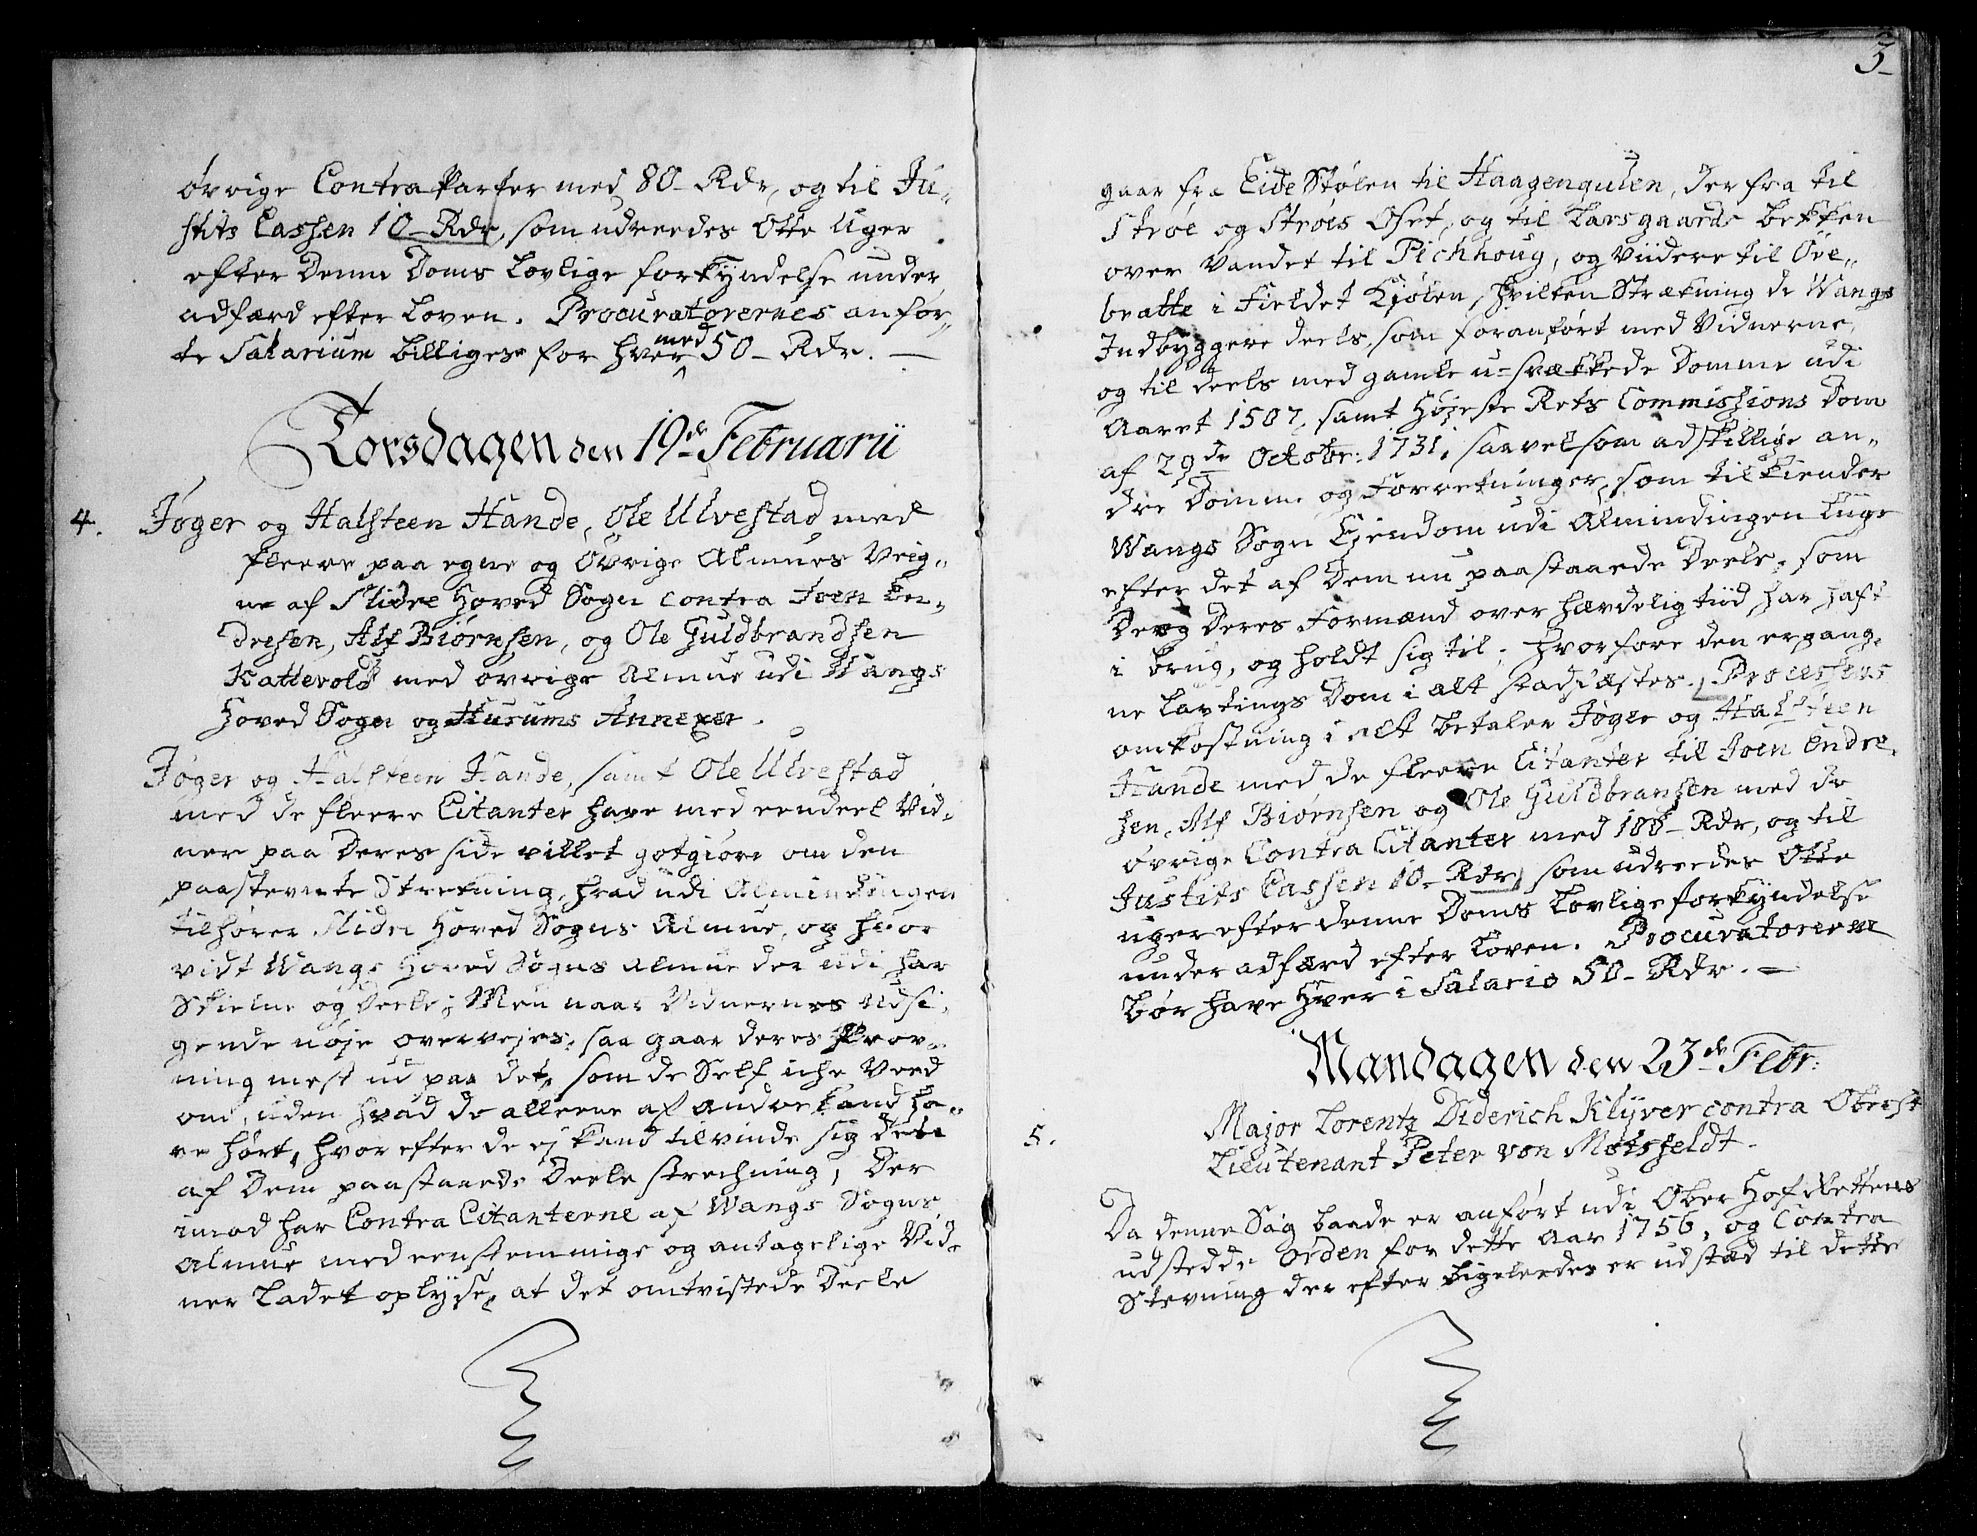 øvrige Contra Parter med 80 - Rdr, og til Ju-
stits Cassen 10 - Rdr, som udreedes Otte Uger
efter Denne Doms Lovlige forkyndelse under
adfærd efter Loven. Procuratorernes anfør-
te Salarium billiges for hver med 50 - Rdr. -
Torsdagen den 19de Februarii
4. Jøger og Halsteen Hande, Ole Ulvestad med
fleere paa egne og Øvrige Almues Veig-
ne af Slidre Hoved Sogn contra Joen En-
dresen, Alf Biørnsen, og Ole Guldbrandsen
Kattevold med øvrige Almue udi Wangs
Hoved Sogn og Hurums Annexer.
Jøger og Halsteen Hande, samt Ole Ulvestad
med de fleere Citanter have med eendeel Vid-
ner paa Deres side villet gotgiøre om den
paastevnte Strekning, hvad udi Almindingen
tilhører Slidre Hoved Sogns Almue, og hvor
vidt Wangs Hoved Sogns Almue der udi har
Skielne og Deele; Men naar Vidnernes Udsi-
gende nøje overvejes, saa gaar deres Prov-
ning mest ud paa det, som de Self iche Veed
om, uden hvad de alleene af andre kand ha-
ve hørt, hvor efter de ej kand tilvinde sig det
af Dem paastaaede Deele strechning, Der
imod har Contra Citanterne af Wangs Sogns
Almue med eenstemmige og antagelige Vid-
ner Ladet oplyse, at det omtvistede Deele
3
gaar fra Eide Stølen til Haagengulen, der fra til
Strøe og Strøes Oset, og til Larsgaards bekken
over Vandet til Pichhoug, og Viidere til Øve-
bratte i Fieldet Kjølen, hvilken Strækning de Wangs
Indbyggere deels, som foranført med Vidnerne,
og til deels med gamle u-svækkede Domme udi
Aaret 1507, samt Højeste Rets Commissions Dom
af 29de Octobr: 1731, saavelsom adskillige an-
dre Domme og Forretninger, som tilkiender
Wangs Sogn Ejendom udi Almindingen Liige
efter det af Dem nu paastaaede Deele, som
De og Deres Formænd over hævdelig tiid har haft
i brug, og holdt sig til; Hvorfore den ergang-
ne Lavtings Dom i alt stadfæstes. Processens
omkostning i alt betaler Jøger og Halsteen
Hande med de fleere Citanter til Joen Endre-
sen, Alf Biørnsen og Ole Guldbransen med de
øvrige Contra Citanter med 100 - Rdr, og til
Justits Cassen 10 - Rdr, som udreedes Otte
uger efter denne Doms Lovlige forkyndelse
under adfærd efter Loven. Procuratorerne
bør have Hver i Salario 50 - Rdr. -
Mandagen den 23de Febr:
5. Major Lorentz Diderich Klÿver contra Oberst
Lieutenant Peter von Motsfeldt.
Da denne Sag baade er anført udi Ober Hof Rettens
udstedde Orden for dette Aar 1756, og Contra
Stevning der efter Ligeleedes er udstæd til dette